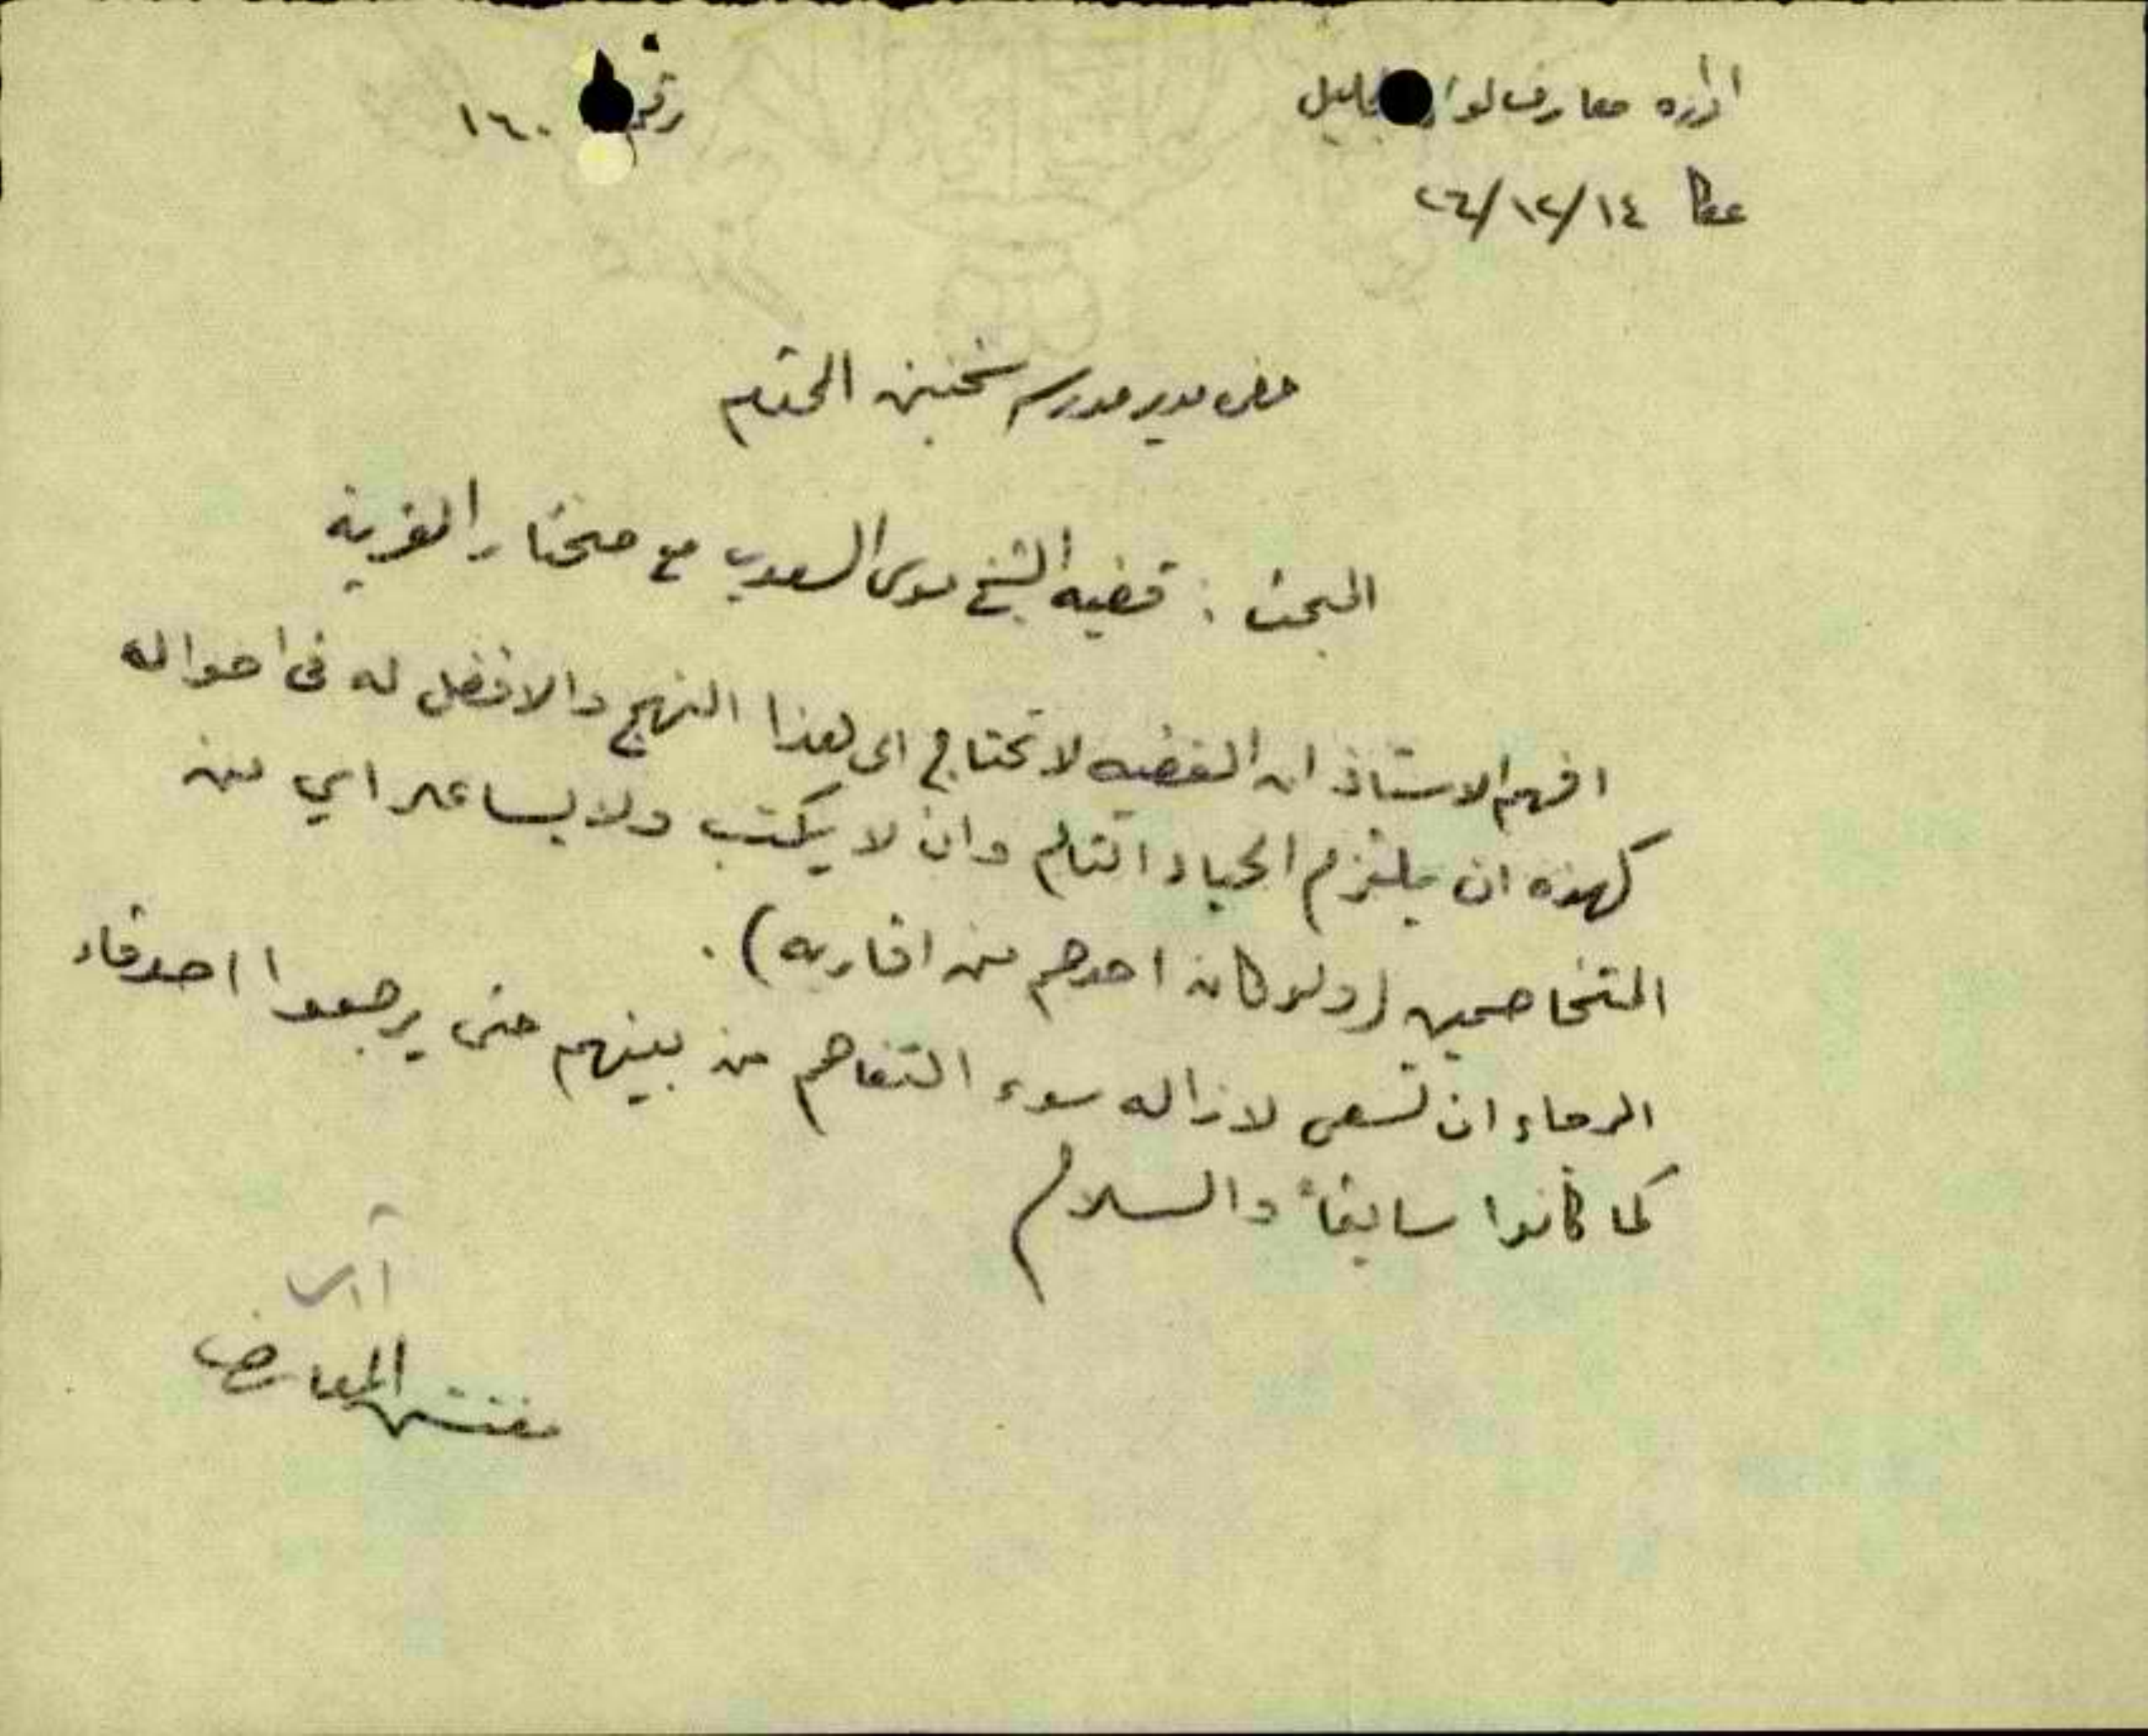 اداره معارف لواء الجليل
رقم ١٦٠
عكا ١٤/١٢/٢٦
حضرة مدير مدرسة سخنين المحترم
البحث : قضيه الشيخ موسى السعدي مع مختار القرية
افهم الاستاذ ان القضيه لا تحتاج الى هذا النهج والافضل له في احواله
كهذه ان يلتزم الحياد التام وان لا يكتب ولا يساعد اي من
المتخاصمين (ولو كان احدهم من اقاربه) .
الرجاء ان تسعى لازاله سوء التفاهم من بينهم حتى يرجعوا اصدقاء
كما كانوا سابقاً والسلام
مفتش المعارف